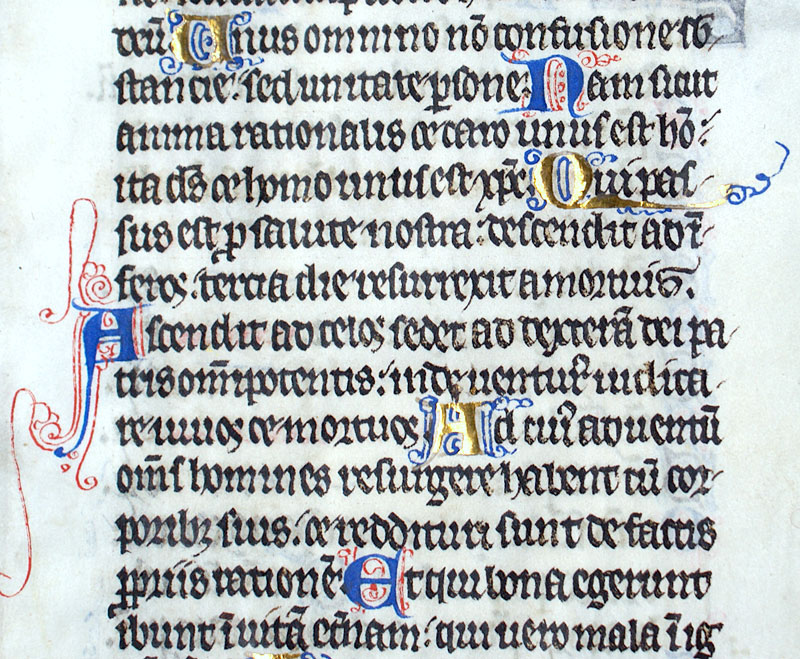 deū. Unus omnino nō confusione sb
stancie: sed unitate ꝑsone. Nam sicut
anima rationalis et caro unus est hō:
ita dś et homo unus est xp̄c. Qui pas
sus est ꝓ salute nostra: descendit ad ī
feros: tercia die resurrexit a mortuis.
Ascendit ad celos sedet ad dexterā dei pa
tris om̄ipotentis: inde uenturꝰ iudica
re uiuos et mortuos. Ad cuiꝰ aduentū
om̄s homines resurgere habent cū cor
poribꝫ suis: et reddituri sunt de factis
ꝓpriis rationē. Et qui bona egerunt
ibunt ī uitā et̄nam: qui uero mala ī ig